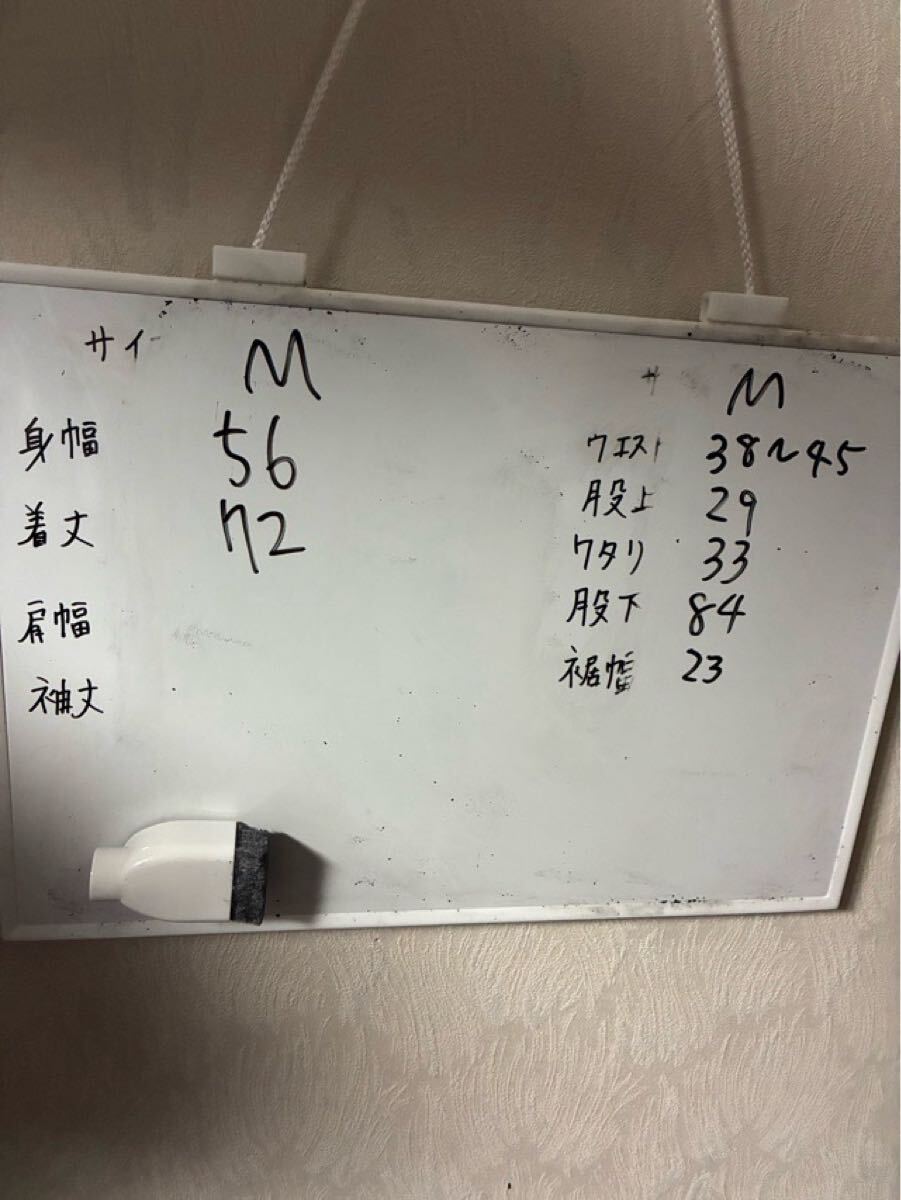 サイ M
身幅 56
着丈 72
肩幅
袖丈
サ M
ウエスト 38~45
股上 29
ワタリ 33
股下 84
裾幅 23